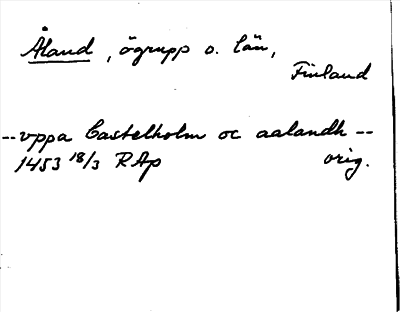 Åland, ögrupp o. län,
Finland
-- vppa Castelholm oc aalandh --
1453 18/3 RAp orig.